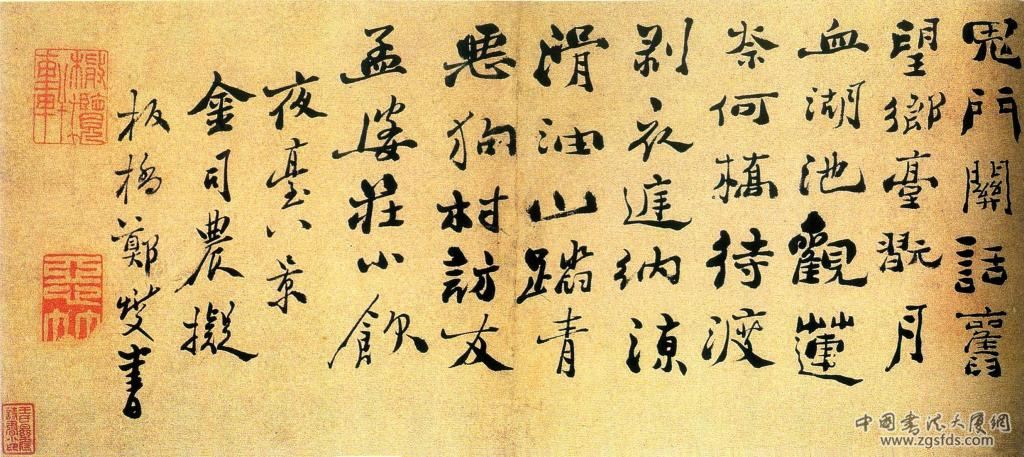 鬼門關話舊
望鄉臺翫月
血湖池觀蓮
柰何橋待渡
剥衣進納涼
滑油山踏青
惡狗村訪友
孟婆莊小飲
夜臺八景
金司農擬
板橋鄭燮書
橄欖軒
中国书法大厦網
www.zgsfds.com